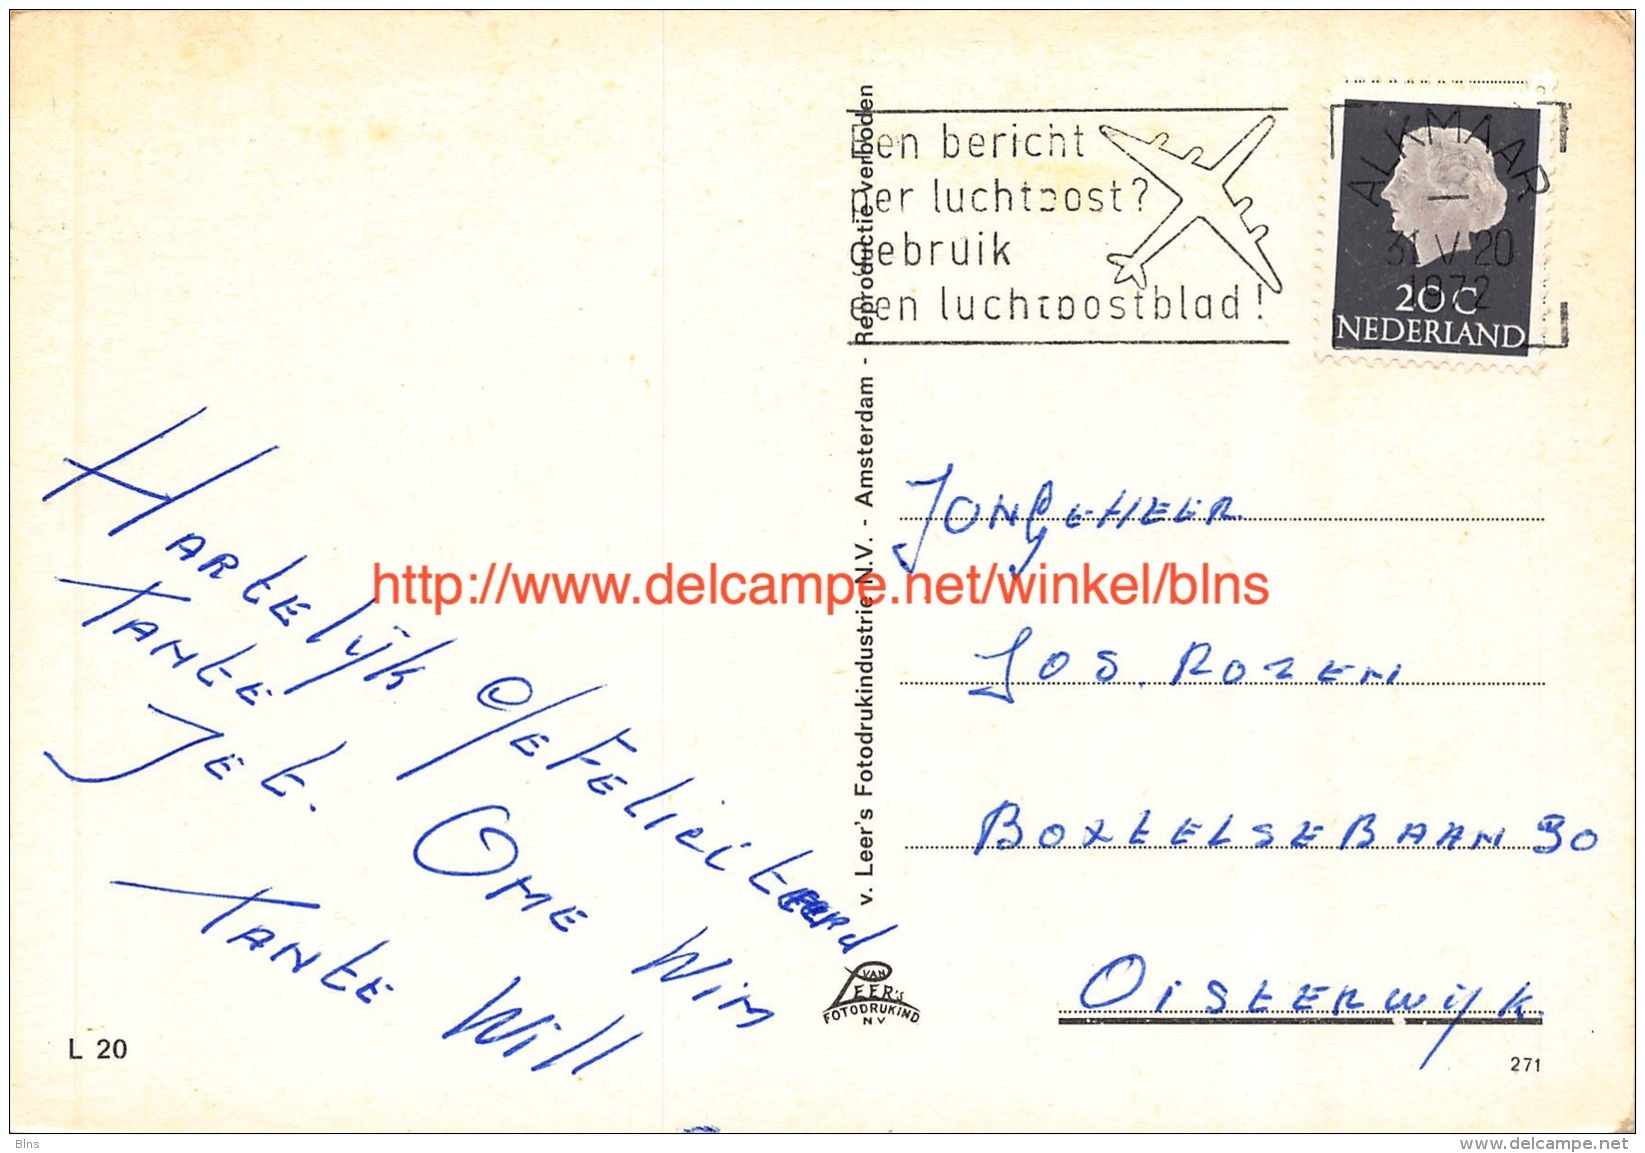 Een bericht
per luchtpost?
gebruik
een luchtpostblad!
ALKMAAR
31 V 20
1972
20 C
NEDERLAND
v. Leer's Fotodrukindustrie N.V. - Amsterdam - Reproductie verboden
http://www.delcampe.net/winkel/blns
HARTELIJK GEFELICITEERD
TANTE
JET. OME WIM
TANTE WILL
JONGEHEER
JOS. ROZEN
BOXTELSEBAAN 30
OISTERWIJK.
VAN
LEER'S
FOTODRUKIND
NV
L 20
271
Blns
www.delcampe.net